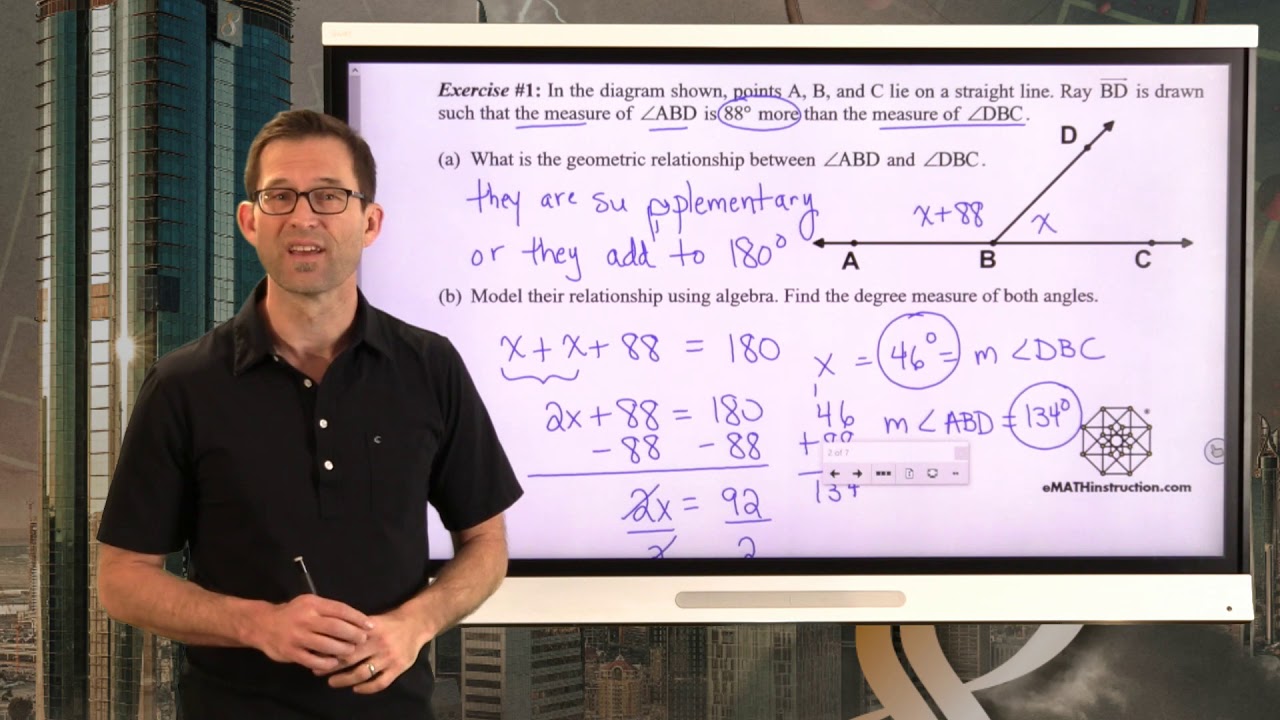 Exercise #1: In the diagram shown, points A, B, and C lie on a straight line. Ray BD is drawn
such that the measure of ∠ABD is 88° more than the measure of ∠DBC.
D
(a) What is the geometric relationship between ∠ABD and ∠DBC.
they are supplementary
or they add to 180°
x+88
x
A
B
C
(b) Model their relationship using algebra. Find the degree measure of both angles.
x + x + 88 = 180
x = 46° = m ∠DBC
2x + 88 = 180
46
m ∠ABD = 134°
- 88 - 88
+
2 of 7
2x = 92
134
2 2
eMATHinstruction.com